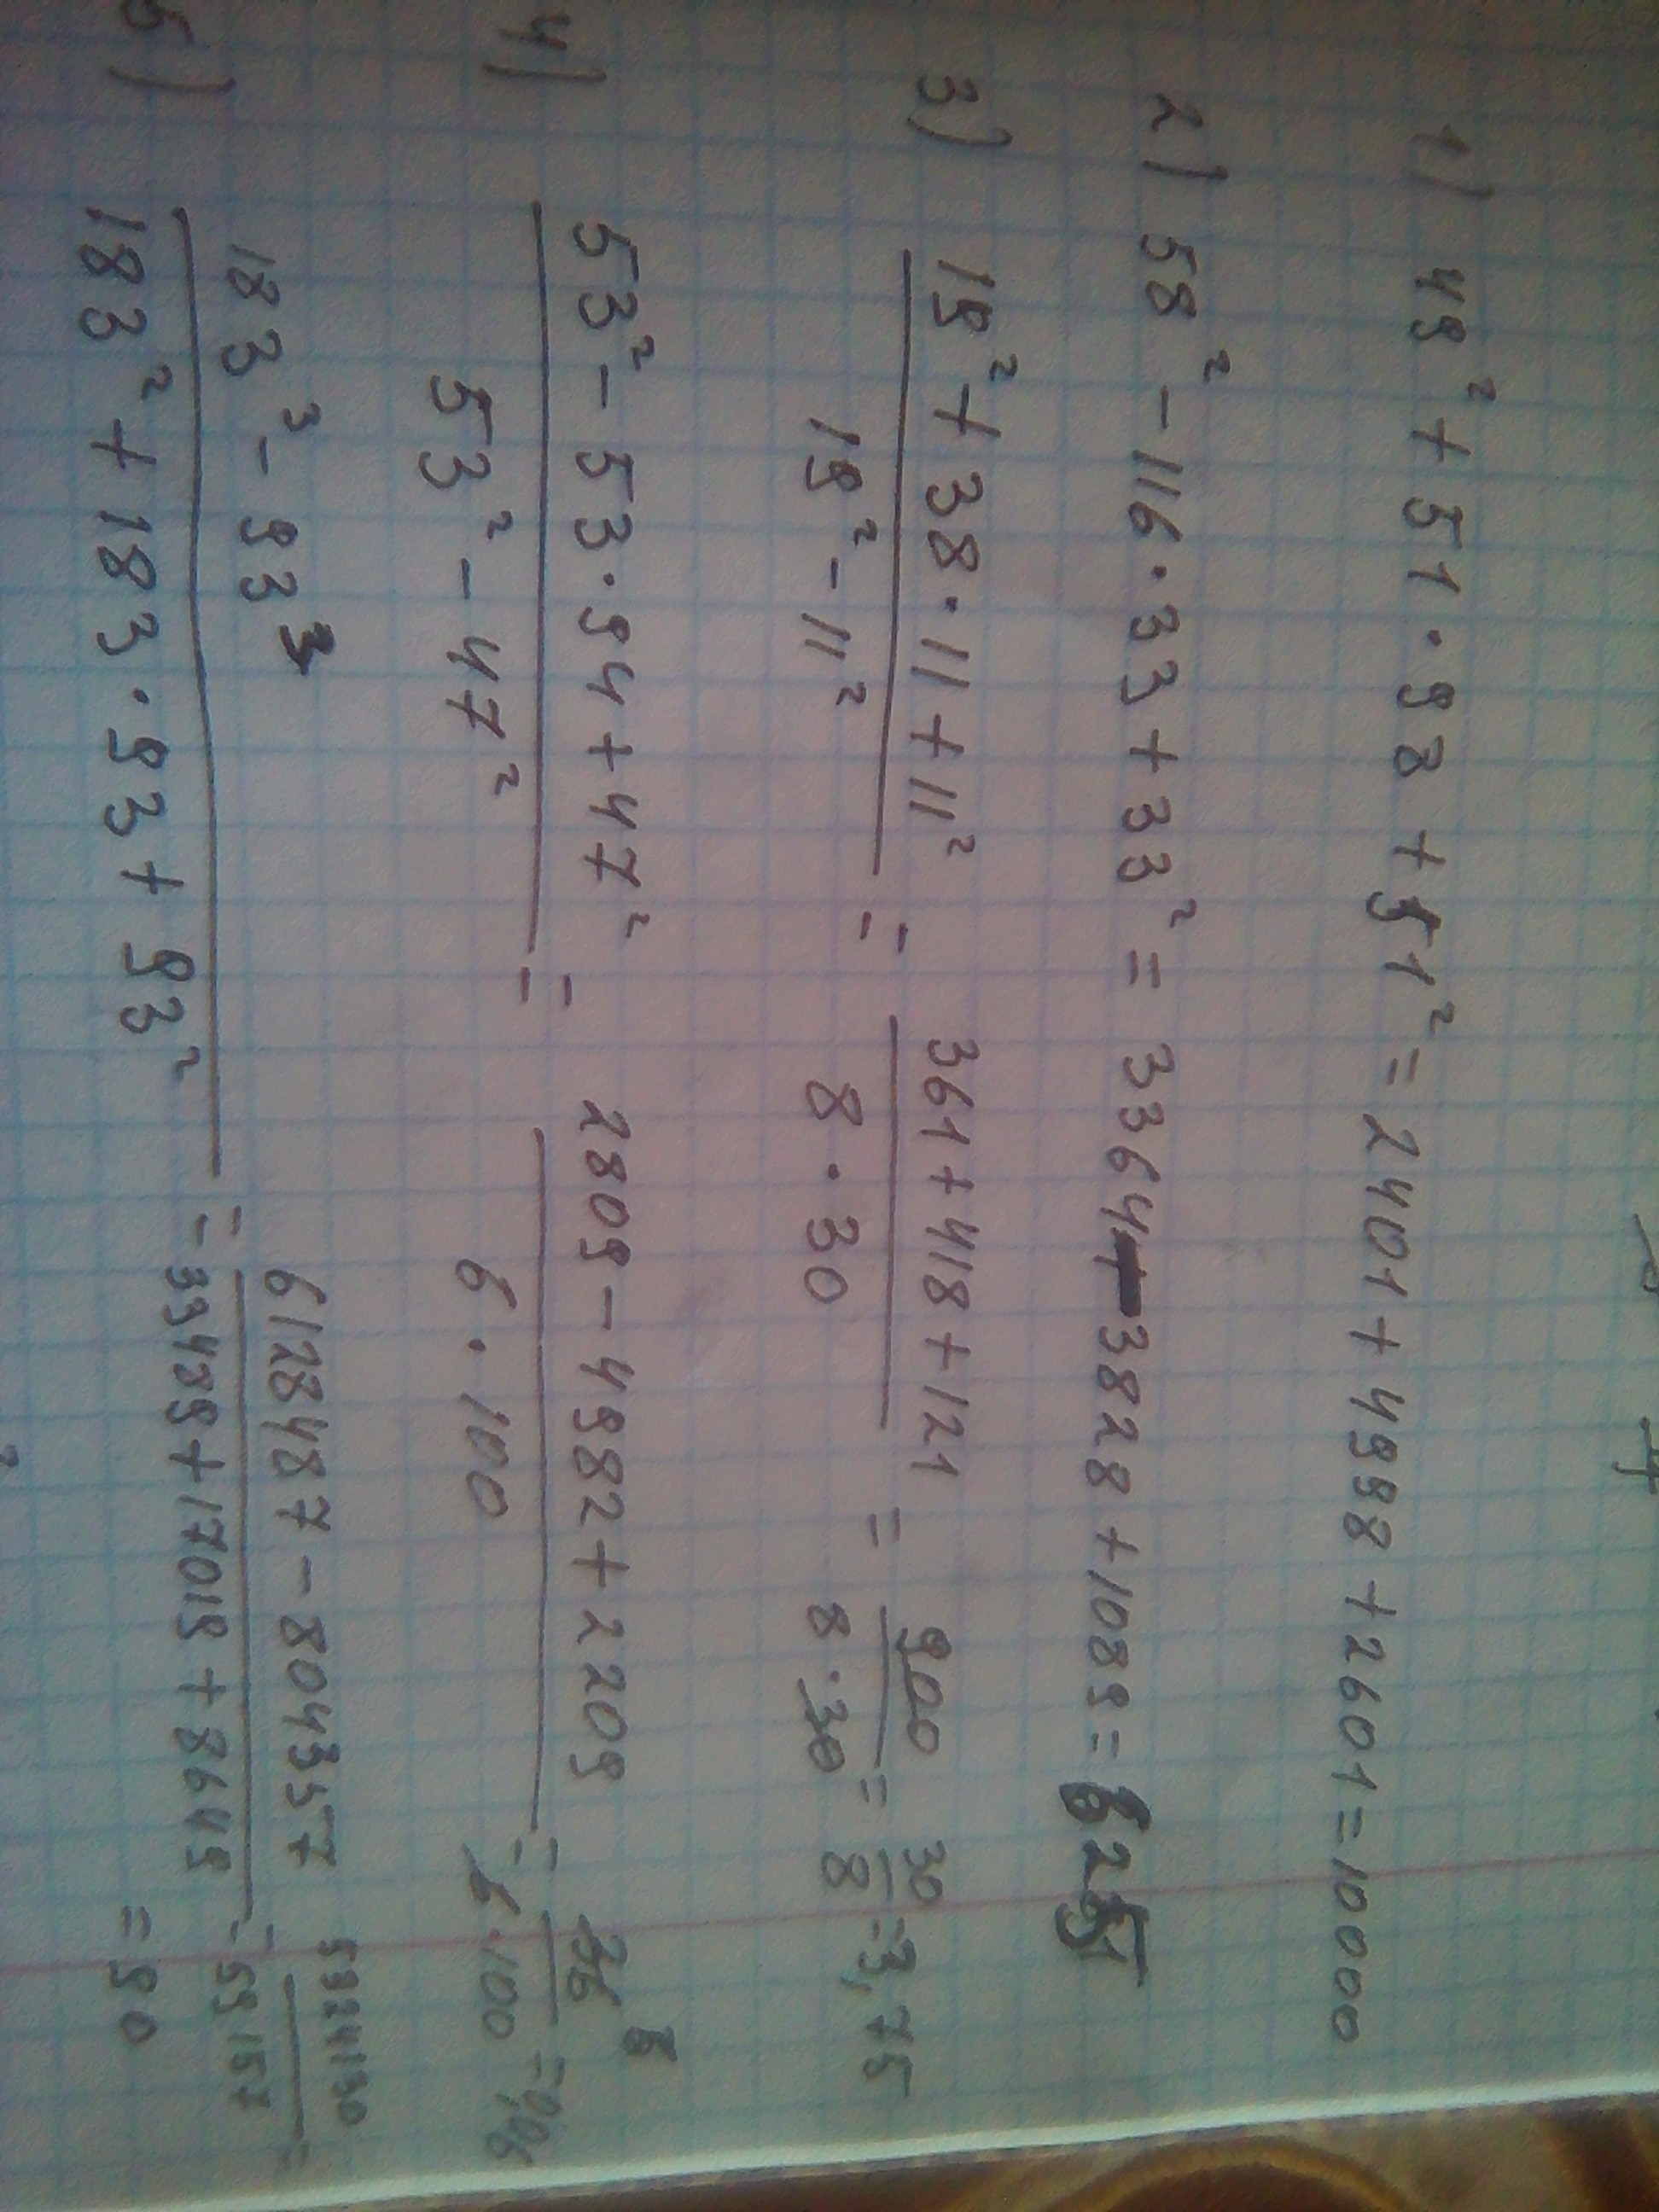 1) 49² + 51 · 98 + 51² = 2401 + 4998 + 2601 = 10000
2) 58² - 116 · 33 + 33² = 3364 - 3828 + 1089 = 625
3) 19² + 38 · 11 + 11² / 19² - 11² = 361 + 418 + 121 / 8 · 30 = 900 / 8 · 30 = 30 / 8 = 3,75
4) 53² - 53 · 94 + 47² / 53² - 47² = 2809 - 4982 + 2209 / 6 · 100 = 36 6 / 6 · 100 = 0,06
5) 183³ - 93³ / 183² + 183 · 93 + 93² = 6128487 - 804357 / 33489 + 17019 + 8649 = 5324130 / 59157 =
= 90